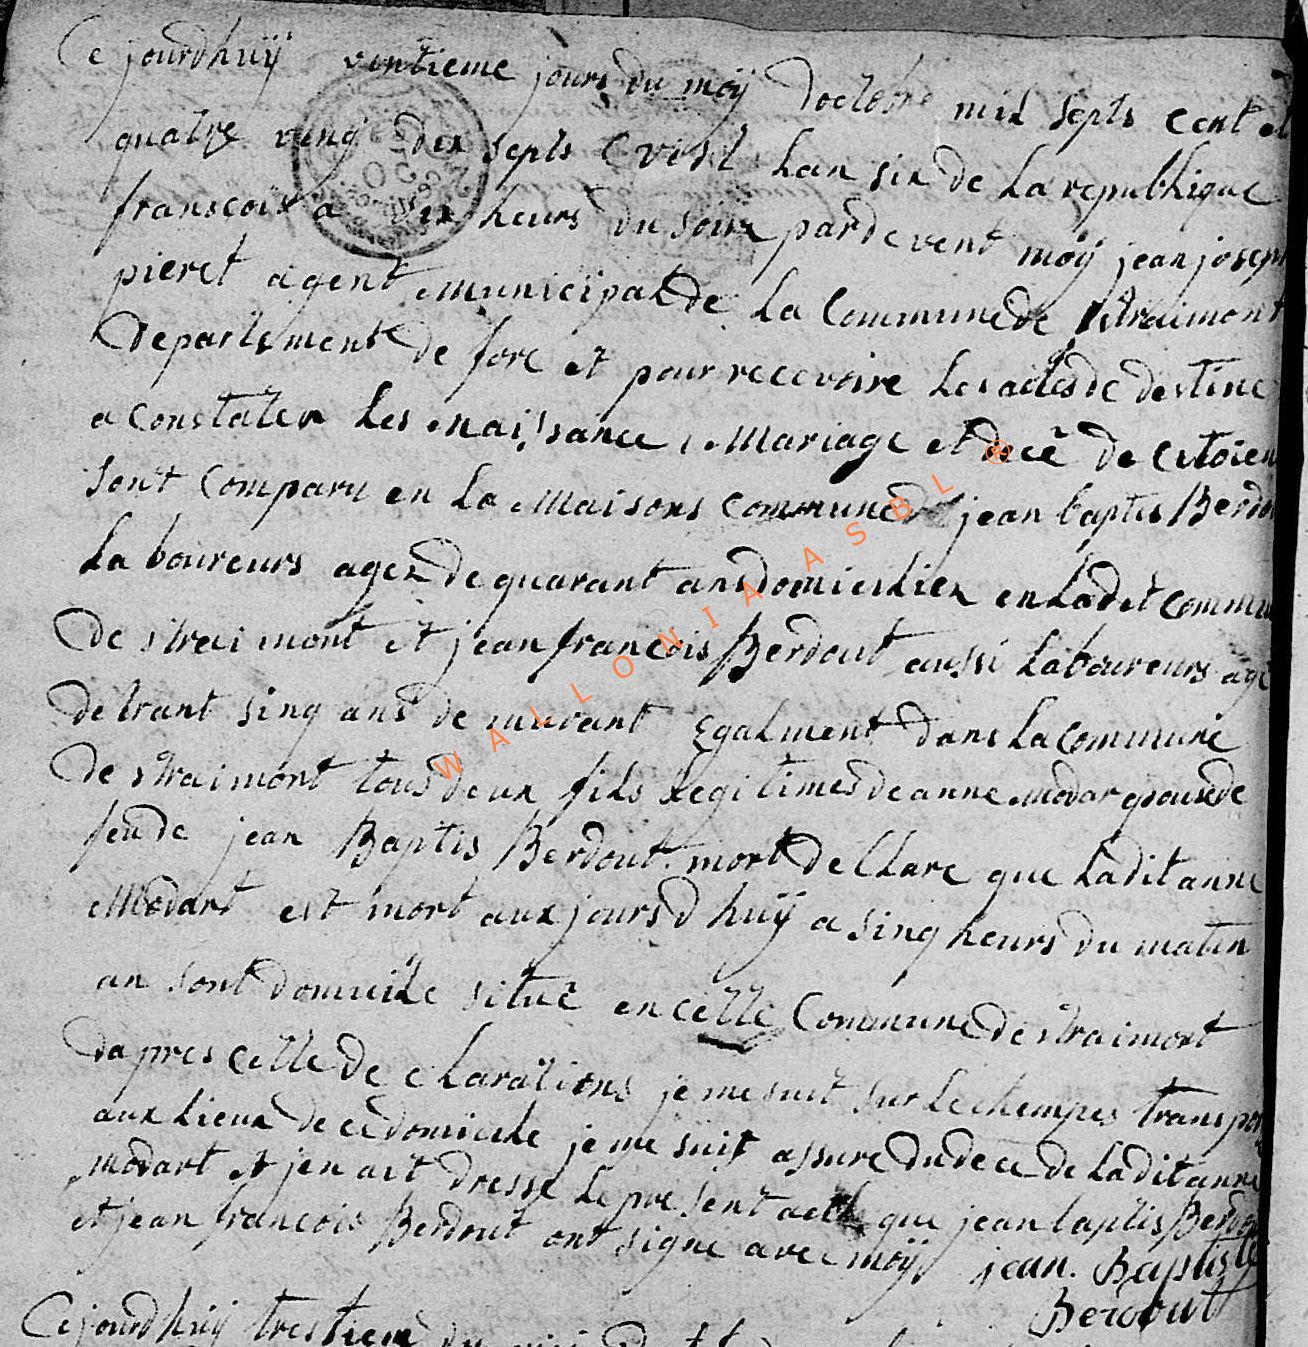 Ce jourdhuÿ ventieme jours du moÿ doctobre mil septs cent et
quatre ving dix septs C vist Lan six de La republique
franscoix a dix heurs du soire pardevent moÿ jean joseph
pieret agent municipal de La Commune de straimont
Departement de fore et pour recevoire Les actes de destine
a constater Les naissance, Mariage et dece de Citoien
sont Comparu en La Maisons commune jean baptis Berdou
La boureurs agez de quarant ans domicilier en Ladit Commu
De straimont et jean francois Berdout aussi Laboureurs age
de trant sinq ans de murant Egalment dans La commune
De straimont tous deux fils Legitimes de anne Modar epouse de
feu de jean Baptis Berdout mort de Clare que Ladit anne
Modart est mort aux joursdhuÿ a sinq heurs du matin
an sont domicile situé en celle Commune de straimont
Dapres cette de clarations je me suit sur Le chempes transpor
aux Lieux de ce domicile je me suit assure du dece de Ladit anne
Modart et jen ait dresse Le present acte que jean baptis Berdou
et jean francois Berdout ont signe avec moÿ jean. Baptiste
Berdout
Ce jourdhuÿ trestieme du
WALLONIA ASBL ®